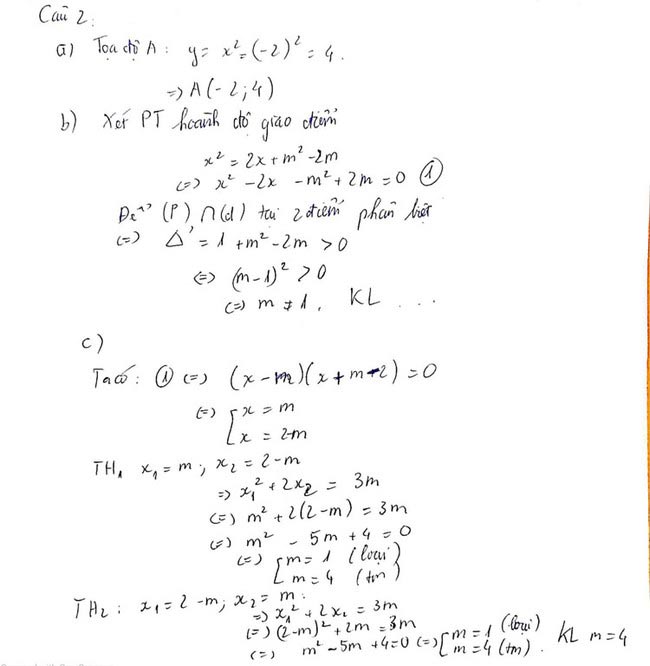 Câu 2:
a) Tọa độ A: y = x² = (-2)² = 4.
=> A(-2; 4)
b) Xét PT hoành độ giao điểm
x² = 2x + m² - 2m
<=> x² - 2x - m² + 2m = 0 ①
Để (P) ∩ (d) tại 2 điểm phân biệt
<=> Δ' = 1 + m² - 2m > 0
<=> (m - 1)² > 0
<=> m ≠ 1. KL ...
c)
Ta có: ① <=> (x - m)(x + m - 2) = 0
<=> [ x = m
x = 2-m
TH1 x₁ = m; x₂ = 2 - m
=> x₁² + 2x₂ = 3m
<=> m² + 2(2 - m) = 3m
<=> m² - 5m + 4 = 0
<=> [ m = 1 (loại)
m = 4 (tm)
TH2: x₁ = 2 - m; x₂ = m.
=> x₁² + 2x₂ = 3m
<=> (2-m)² + 2m = 3m
<=> m² - 5m + 4 = 0 <=> [ m = 1 (loại)
m = 4 (tm). KL m = 4